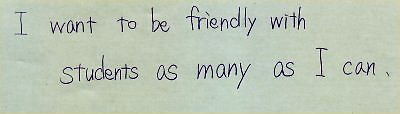 I want to be friendly with
students as many as I can.